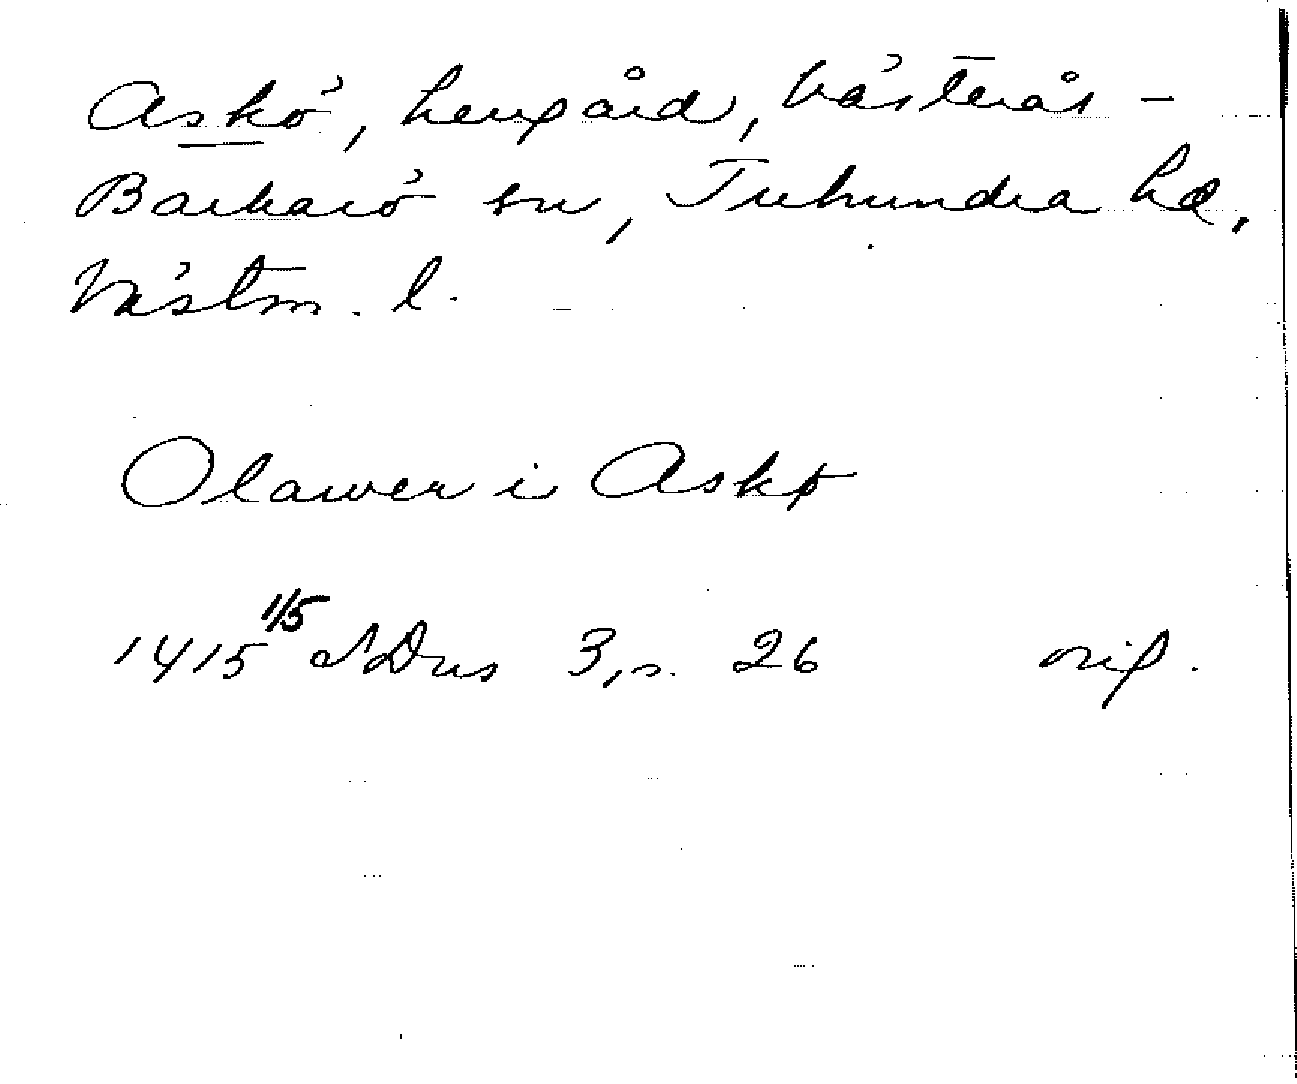 Askö, herrgård, Västerås-
Barkarö sn, Tuhundra hd,
Västm. l.
Olawer i Askø
1415 1/5 SDns 3, s. 26 orig.